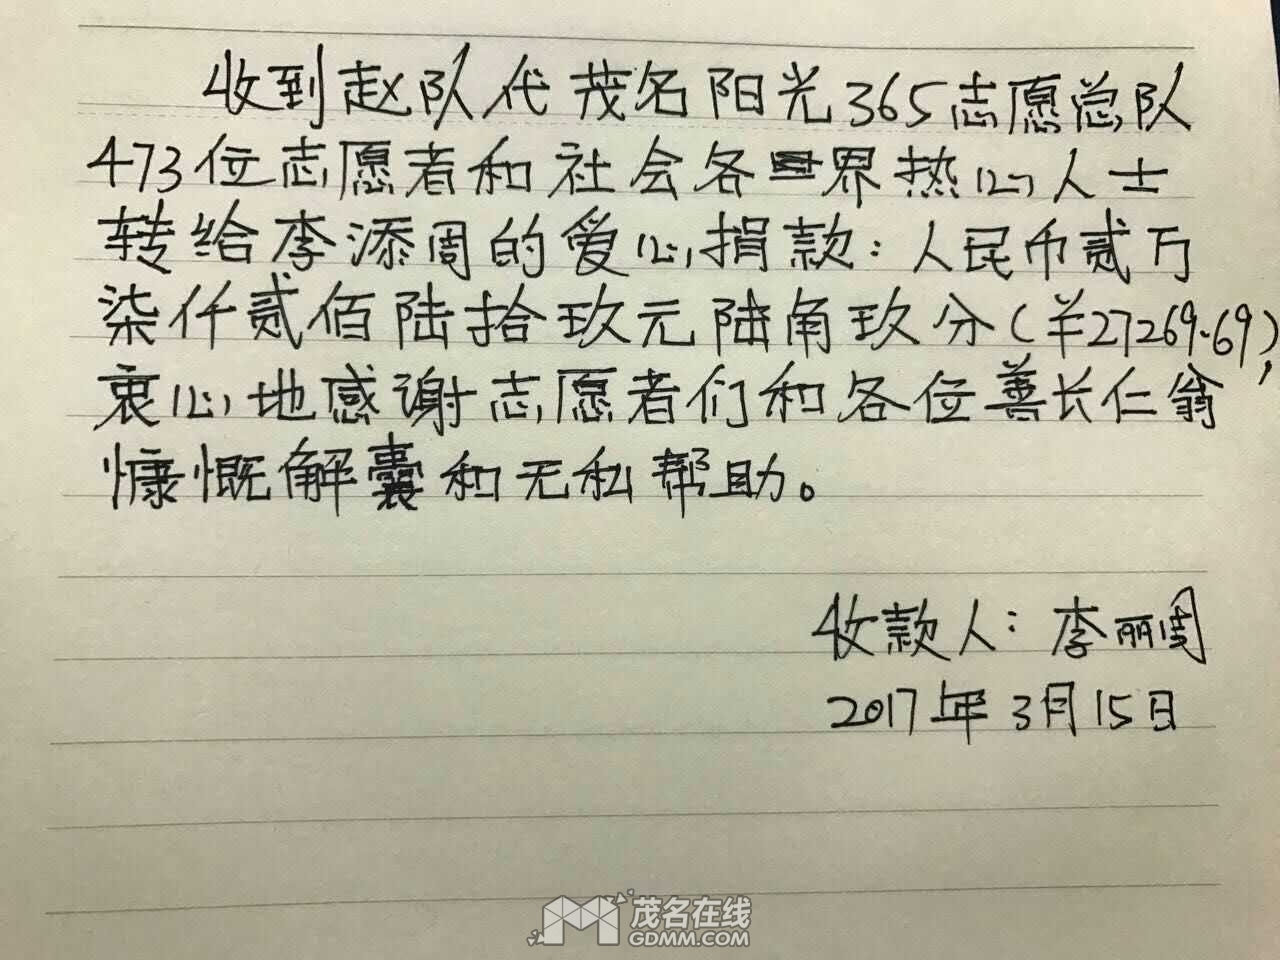 收到赵队代茂名阳光365志愿总队
473位志愿者和社会各界热心人士
转给李添周的爱心捐款：人民币贰万
柒仟贰佰陆拾玖元陆角玖分(羊27269.69),
衷心地感谢志愿者们和各位善长仁翁
慷慨解囊和无私帮助。
收款人：李丽周
2017年3月15日
茂名在线
GDMM.COM